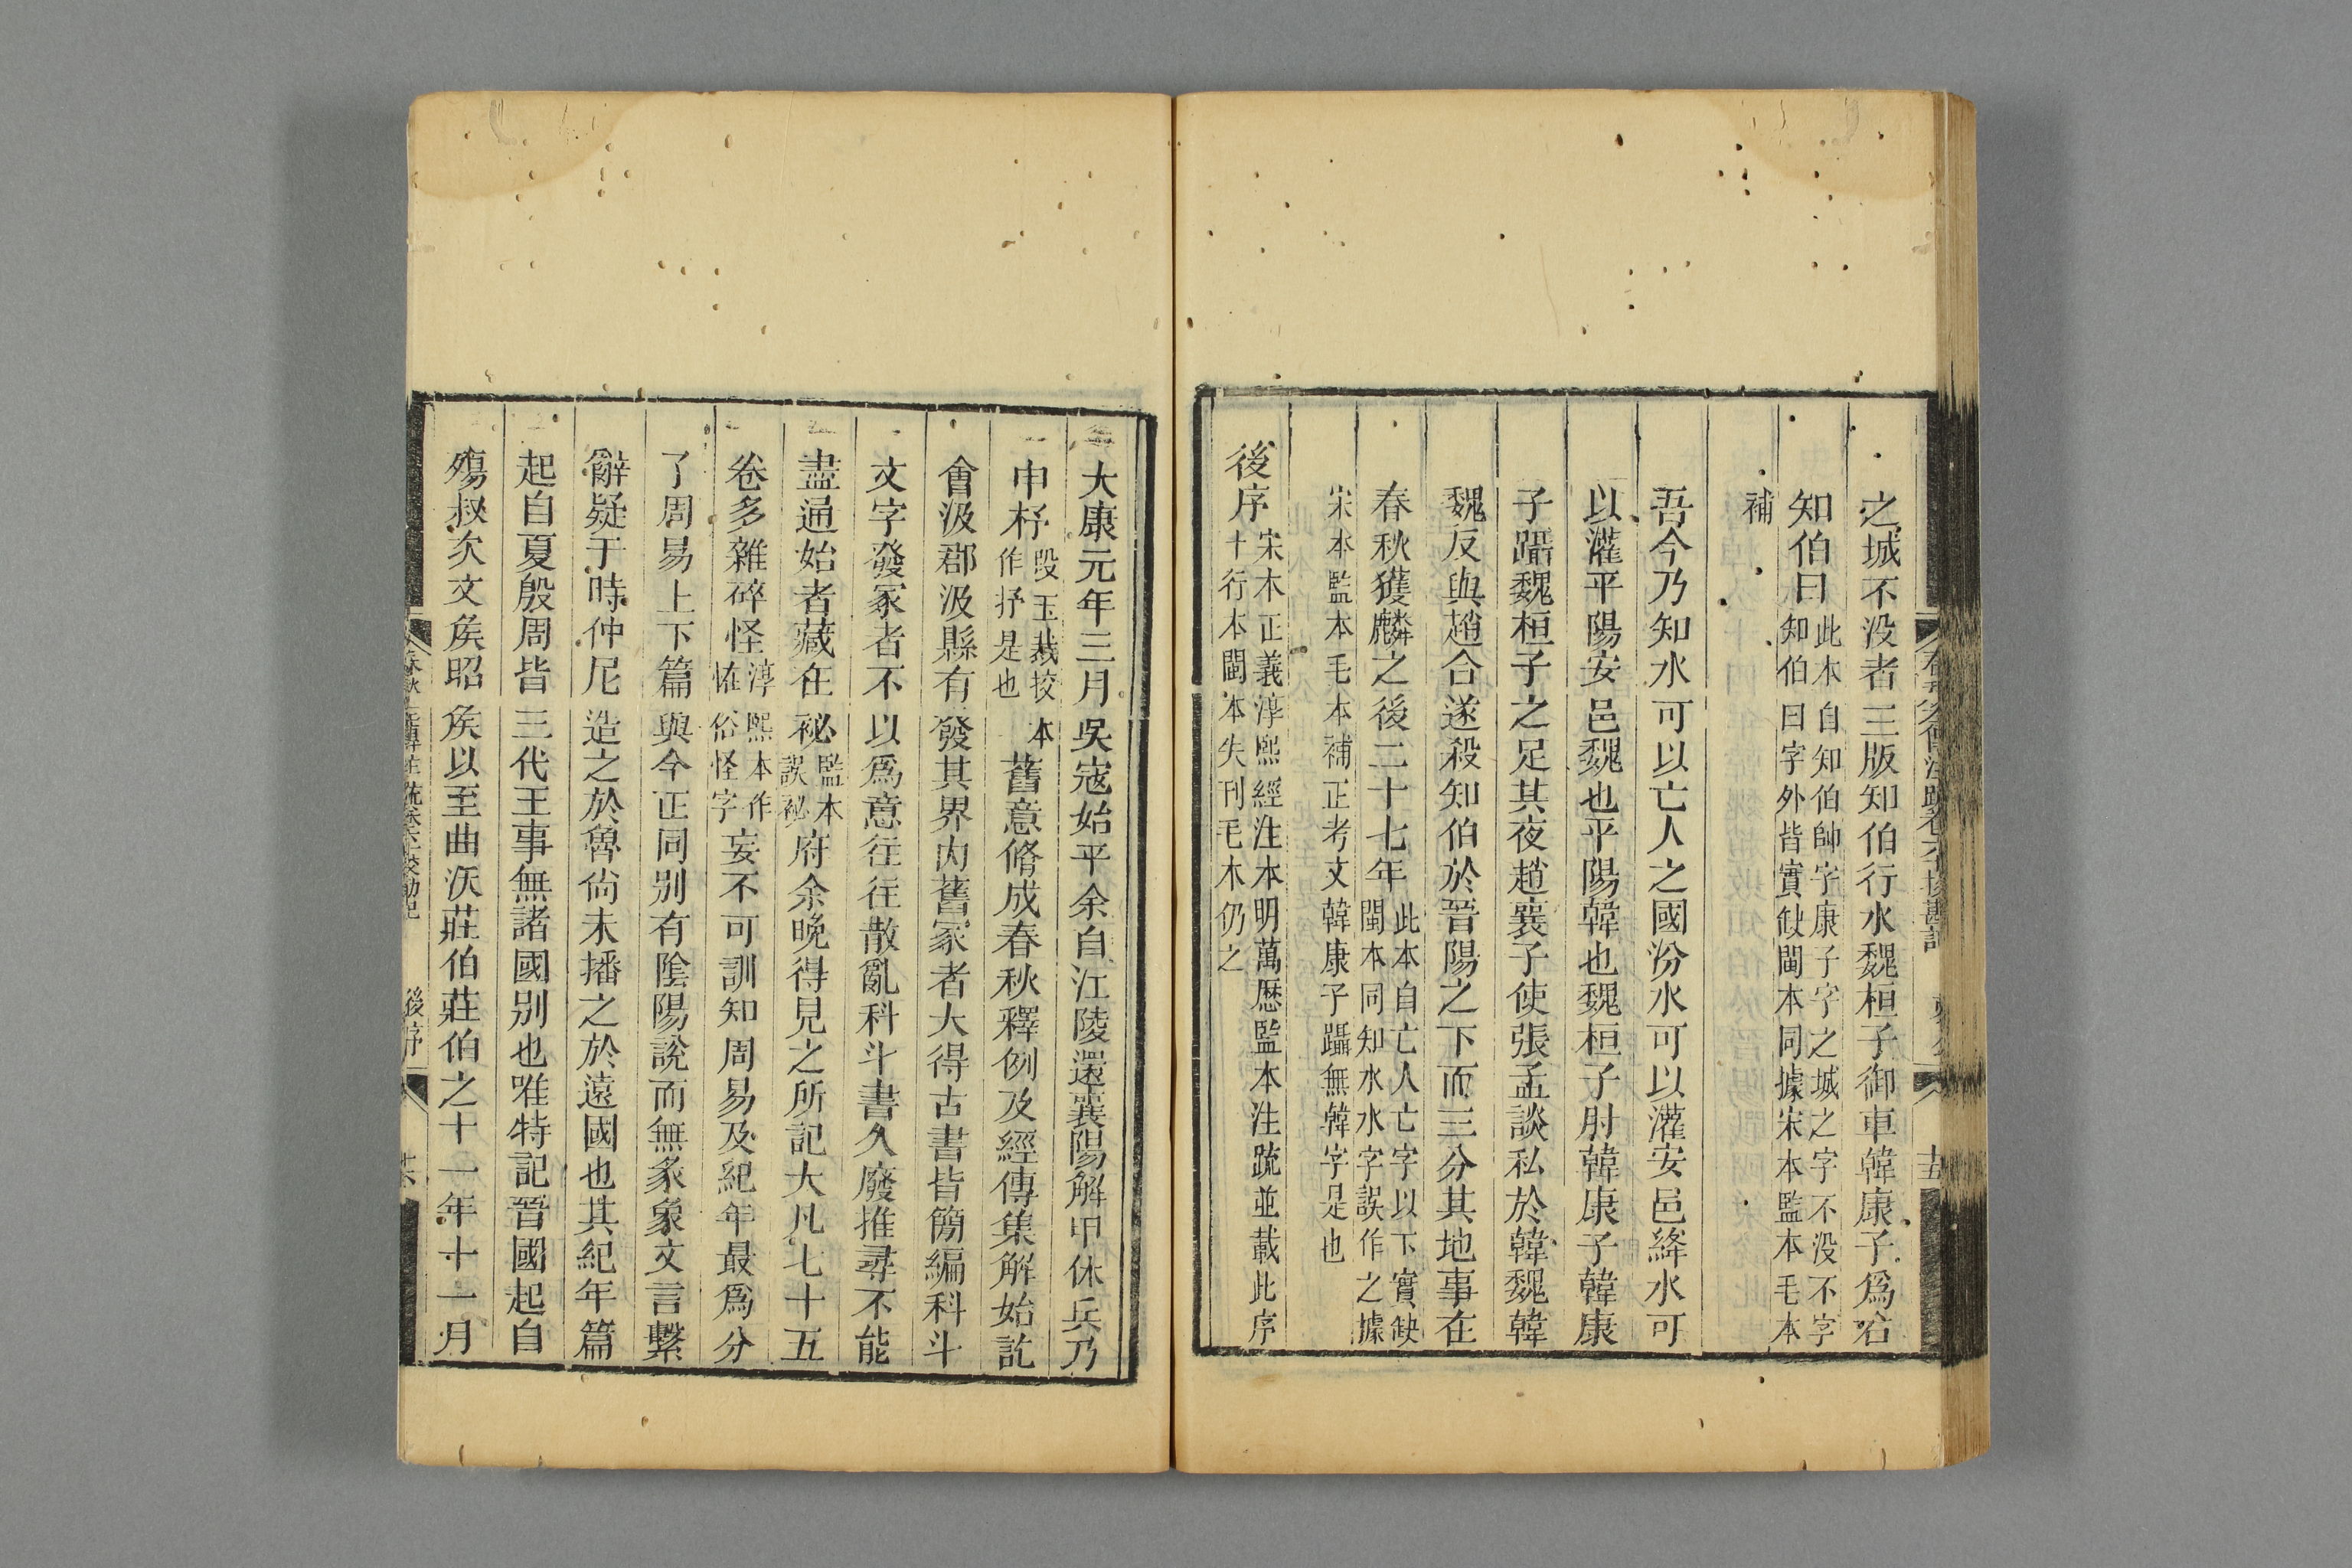 之城不没者三版知伯行水魏桓子御車韓康子爲右
知伯曰此本自知伯帥字康子字之城之字不没不字
知伯曰字外皆實缺閩本同據宋本監本毛本
補
吾今乃知水可以亡人之國汾水可以灌安邑絳水可
以灌平陽安邑魏也平陽韓也魏桓子肘韓康子韓康
子躡魏桓子之足其夜趙襄子使張孟談私於韓魏韓
魏反與趙合遂殺知伯於晉陽之下而三分其地事在
春秋獲麟之後二十七年此本自亡人亡字以下實缺
閩本同知水水字誤作之據
宋本監本毛本補正考文韓康子躡無韓字是也
後序宋木正義淳熙經注本明萬歷監本注疏並載此序
十行本閩本失刊毛木仍之
大康元年三月吳寇始平余自江陵還襄陽解甲休兵乃
申杼段玉裁挍本
作抒是也
舊意脩成春秋釋例及經傳集解始訖
會汲郡汲縣有發其界内舊冢者大得古書皆簡編科斗
文字發冢者不以爲意往往散亂科斗書久廢推尋不能
盡通始者藏在祕監本
誤秘
府余晚得見之所記大凡七十五
卷多雜碎怪淳熙本作
恠俗怪字
妄不可訓知周易及紀年最爲分
了周易上下篇與今正同别有陰陽說而無彖象文言繫
辭疑于時仲尼造之於魯尙未播之於遠國也其紀年篇
起自夏殷周皆三代王事無諸國别也唯特記晉國起自
殤叔次文矦昭矦以至曲沃莊伯莊伯之十一年十一月
後序